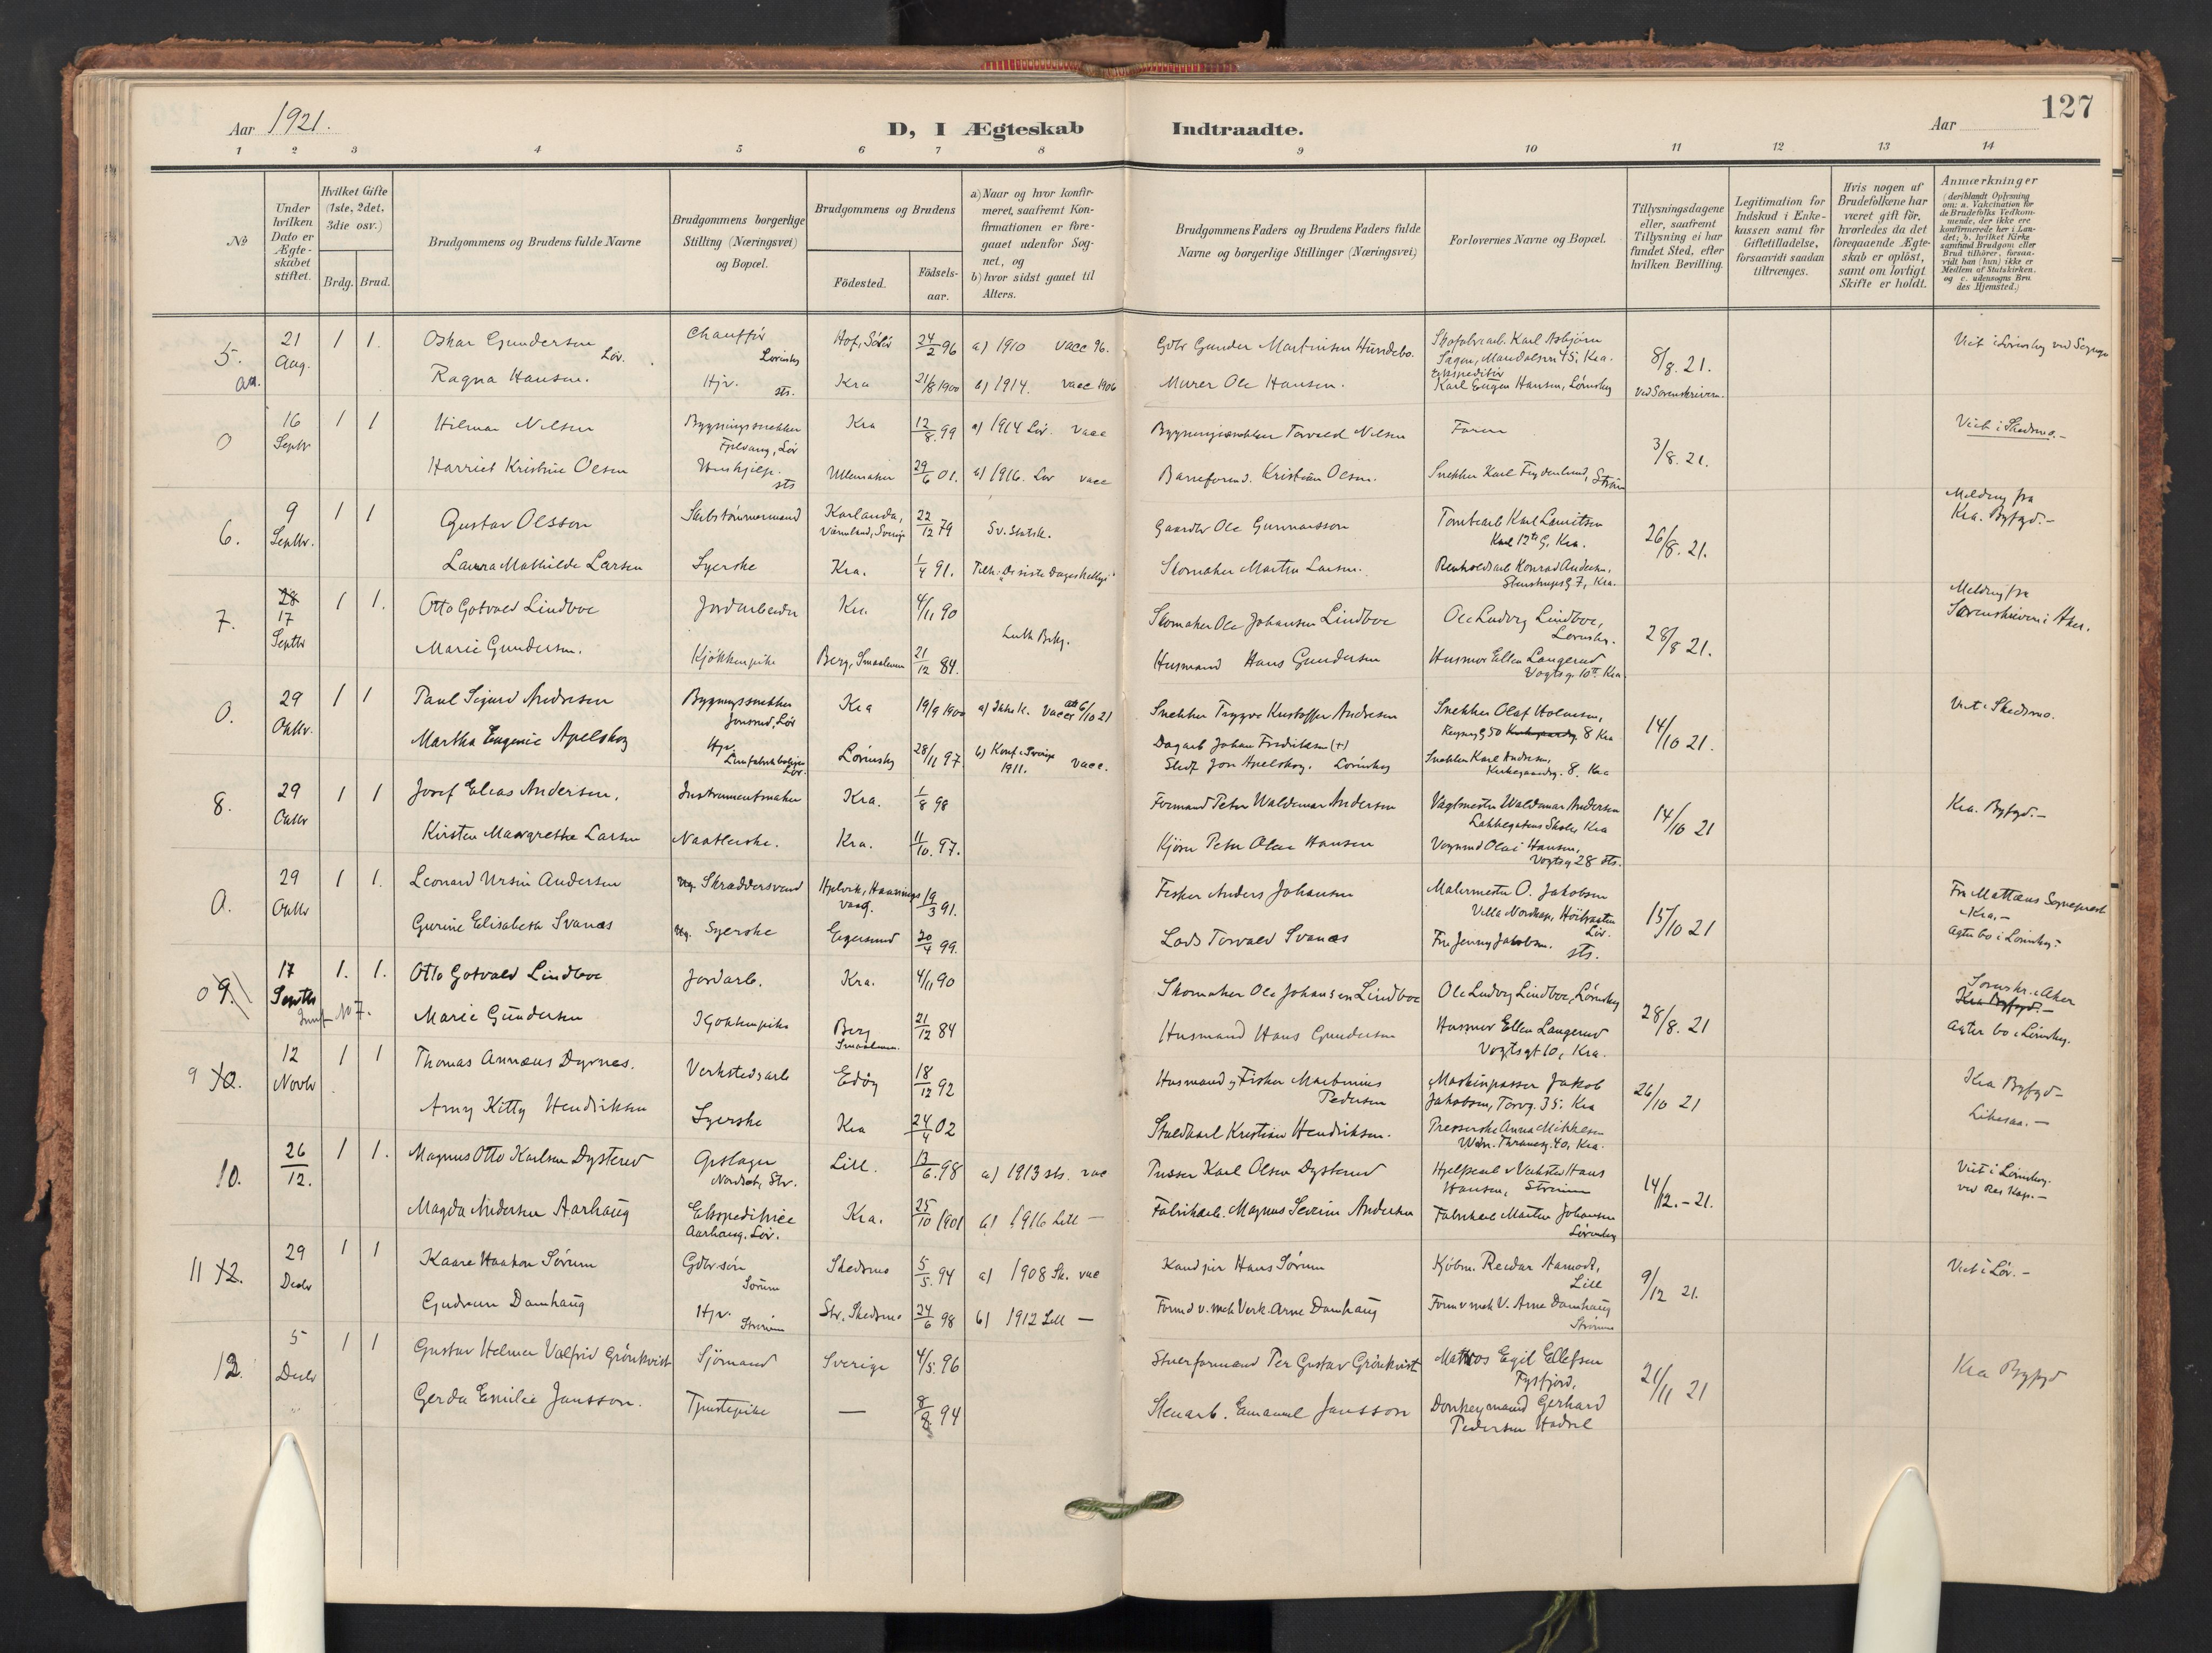 Aar 1921.
D, I Ægteskab
Indtraadte.
Aar
127
1 2 3 4 5 6 7 8 9 10 11 12 13 14
No
Under hvilken Dato er Ægteskabet stiftet.
Hvilket Gifte (1ste, 2det, 3die osv.)
Brdg. Brud.
Brudgommens og Brudens fulde Navne
Brudgommens borgerlige Stilling (Næringsvei) og Bopæl.
Brudgommens og Brudens
Födested.
Födsels-aar.
a) Naar og hvor konfirmeret, saafremt Konfirmationen er foregaaet udenfor Sognet, og
b) hvor sidst gaaet til Alters.
Brudgommens Faders og Brudens Faders fulde Navne og borgerlige Stillinger (Næringsvei)
Forlovernes Navne og Bopæl.
Tillysningsdagene eller, saafremt Tillysning ei har fundet Sted, efter hvilken Bevilling.
Legitimation for Indskud i Enkekassen samt for Giftetilladelse, forsaavidt saadan tiltrænges.
Hvis nogen af Brudefolkene har været gift för, hvorledes da det foregaaende Ægteskab er oplöst, samt om lovligt Skifte er holdt.
Anmærkninger
(deriblandt Oplysning om: a. Vakcination for de Brudefolks Vedkommende, der ikke ere konfirmerede her i Landet; b. hvilket Kirkesamfund Brudgom eller Brud tilhörer, forsaavidt han (hun) ikke er Medlem af Statskirken. og c. udensogns Brudes Hjemsted.)
5. 21 Aug. 1 1. Oskar Gundersen Chaufför Lör. Lörenskog Hof, Solör 24/2 96 a) 1910 vacc 96. Gbr Gunder Martinsen Hundebo. Karl Asbjörn 8/8. 21.
Ragna Hansen. Hjv. sts. Kra 21/8 1900 b) 1914. vacc 1906 Murer Ole Hansen. Karl Eugen Hansen, Lörenskog
0 16 Septbr 1 1 Hilmar Nilsen Bygningssnekker Kra 12/8. 99 a) 1914 Lör. vacc Bygningssnekker Torvald Nilsen Faren 3/8. 21. Viet i Skedsmo.-
Harriet Kristine Olsen Hushjelp. sts Ullensaker 29/6 01. b) 1916. Lör vacc Kristian Olsen. Snekker Karl Frydenlund, Ström
6. 9 Septbr. 1 1 Gustav Olsson Karlanda, Värmland, Sverige 22/12 79 Sv. Statsk. Gaardbr Ole Gunnarsson Karl Lauritsen Karl 12te G. Kra. 26/8. 21. Melding fra Kra. Byfgd.-
Laura Mathilde Larsen Syerske Kra. 1/4 91. Tilh: "De siste Dages hellige" Skomaker Martin Larsen. Renholdsarb Konrad Andersen, Stenstrups G 7, Kra.
7. 28 17 Septbr 1 1. Otto Gotvald Lindboe Jordarbeider Kra. 4/11 90 Skomaker Ole Johansen Lindboe Ole Ludvig Lindboe, Lörenskog. 28/8 21. Melding fra Sorenskriveren i Aker.
Marie Gundersen. Kjökkenpike Berg, Smaalenene 21/12 84. Husmand Hans Gundersen Husmor Ellen Langerud Vogtsg. 10 Kra.
0. 29 Oktbr. 1 1 Paul Sigurd Andresen Bygningssnekker Kra 19/9 1900 Snekker Trygve Kristoffer Andresen Snekker Olaf Holmsen, 8 Kra 14/10 21. Viet i Skedsmo.
Martha Eugenie Apelskog Hjv. Lörenskog 28/11 97 b) Konf i Sverige 1911. vacc. Dagarb Johan Fredriksen (+) Jon Apelskog. Lörenskog Snekker Karl Andresen, Kirkegaardsg. 8. Kra
8. 29 Oktbr 1 1 Josef Elias Andersen. Instrumentmaker Kra. 1/8 98 Formand Peter Waldemar Andersen Vagtmester Waldemar Andersen Lakkegatens Skole, Kra 14/10 21 Kra. Byfgd.-
Kirsten Margrethe Larsen Naatlerske. Kra. 11/10. 97. Kjörer Peter Olai Hansen Vognmd Olai Hansen, Vogtsg 28 sts.
0. 29 Oktbr 1 1. Leonard Ursin Andersen Skræddersvend Hjelvik, 19/3 91. Fisker Anders Johansen Malermester O. Jakobsen Villa Nordkap, Höibraaten Lör. 15/10 21 Fra Mattæus Sogneprest i Kra.- Agter bo i Lörenskog.
Gurine Elisabeth Svanæs Syerske Egersund 20/4 99. Lods Torvald Svanæs Fru Jenny Jakobsen. sts.
0 9. 17 Septbr 1. 1. Otto Gotvald Lindboe Jordarb. Kra. 4/11 90 Skomaker Ole Johansen Lindboe Ole Ludvig Lindboe, Lörenskog 28/8. 21 Sorenskr. i Aker Kra Byfgd.-
No 7. Marie Gundersen Kjökkenpike Berg Smaalenene. 21/12 84 Husmand Hans Gundersen Husmor Ellen Langerud Vogtsgt 10, Kra. Agter bo i Lörenskog.
9 10. 12 Novbr 1 1 Thomas Annæus Dyrnes. Verkstedsarb Edöy 18/12 92 Husmand og Fisker Martinius Pedersen Maskinpasser Jakob Jakobsen, Torvg. 35. Kra 26/10 21 Kra Byfgd-
Amy Kitty Hendriksen Syerske Kra 24/4 02 Staldkarl Kristian Hendriksen. Presserske Anna Mikkelsen Wdm. Thranesg. 40, Kra. Likesaa.-
10. 26/12. 1 1. Magnus Otto Karlsen Dysterud Lill. 13/6. 98 a) 1913 sts. vac Pusser Karl Olsen Dysterud Hjelpearb v Verksted Hans Hansen, Strömmen 14/12.-21. Viet i Lörenskog. ved Res Kap.-
Magda Andersen Aarhaug Ekspeditrice Aarhaug. Lör. Kra. 25/10 1901 b) 1916 Lill - Fabrikarb. Magnus Severin Andersen Fabrikarb Martin Johansen Lörenskog
11 12. 29 Decbr 1 1 Kaare Haakon Sörum Gbr.sön Sörum Skedsmo 5/5. 94 a) 1908 Sk. vac Kand jur Hans Sörum Kjöbm. Reidar Aamodt, Lill 9/12 21. Viet i Lör.-
Gudrun Damhaug Hjv. Strömmen Str. Skedsmo 24/6 98 b) 1912 Lill - Formd v. mek Verk. Arne Damhaug Form v mek V. Arne Damhaug Strömmen
12. 5 Decbr 1 1 Gustav Helmer Valfrid Grönkvist Sjömand Sverige 4/5. 96 Stuerformand Per Gustav Grönkvist Matros Egil Ellefsen Tysfjord, 21/11 21 Kra Byfgd
Gerda Emilie Jansson. Tjenestepike — 8/8 94 Stenarb. Emanuel Jansson Donkeymand Gerhard Pedersen Hadsel